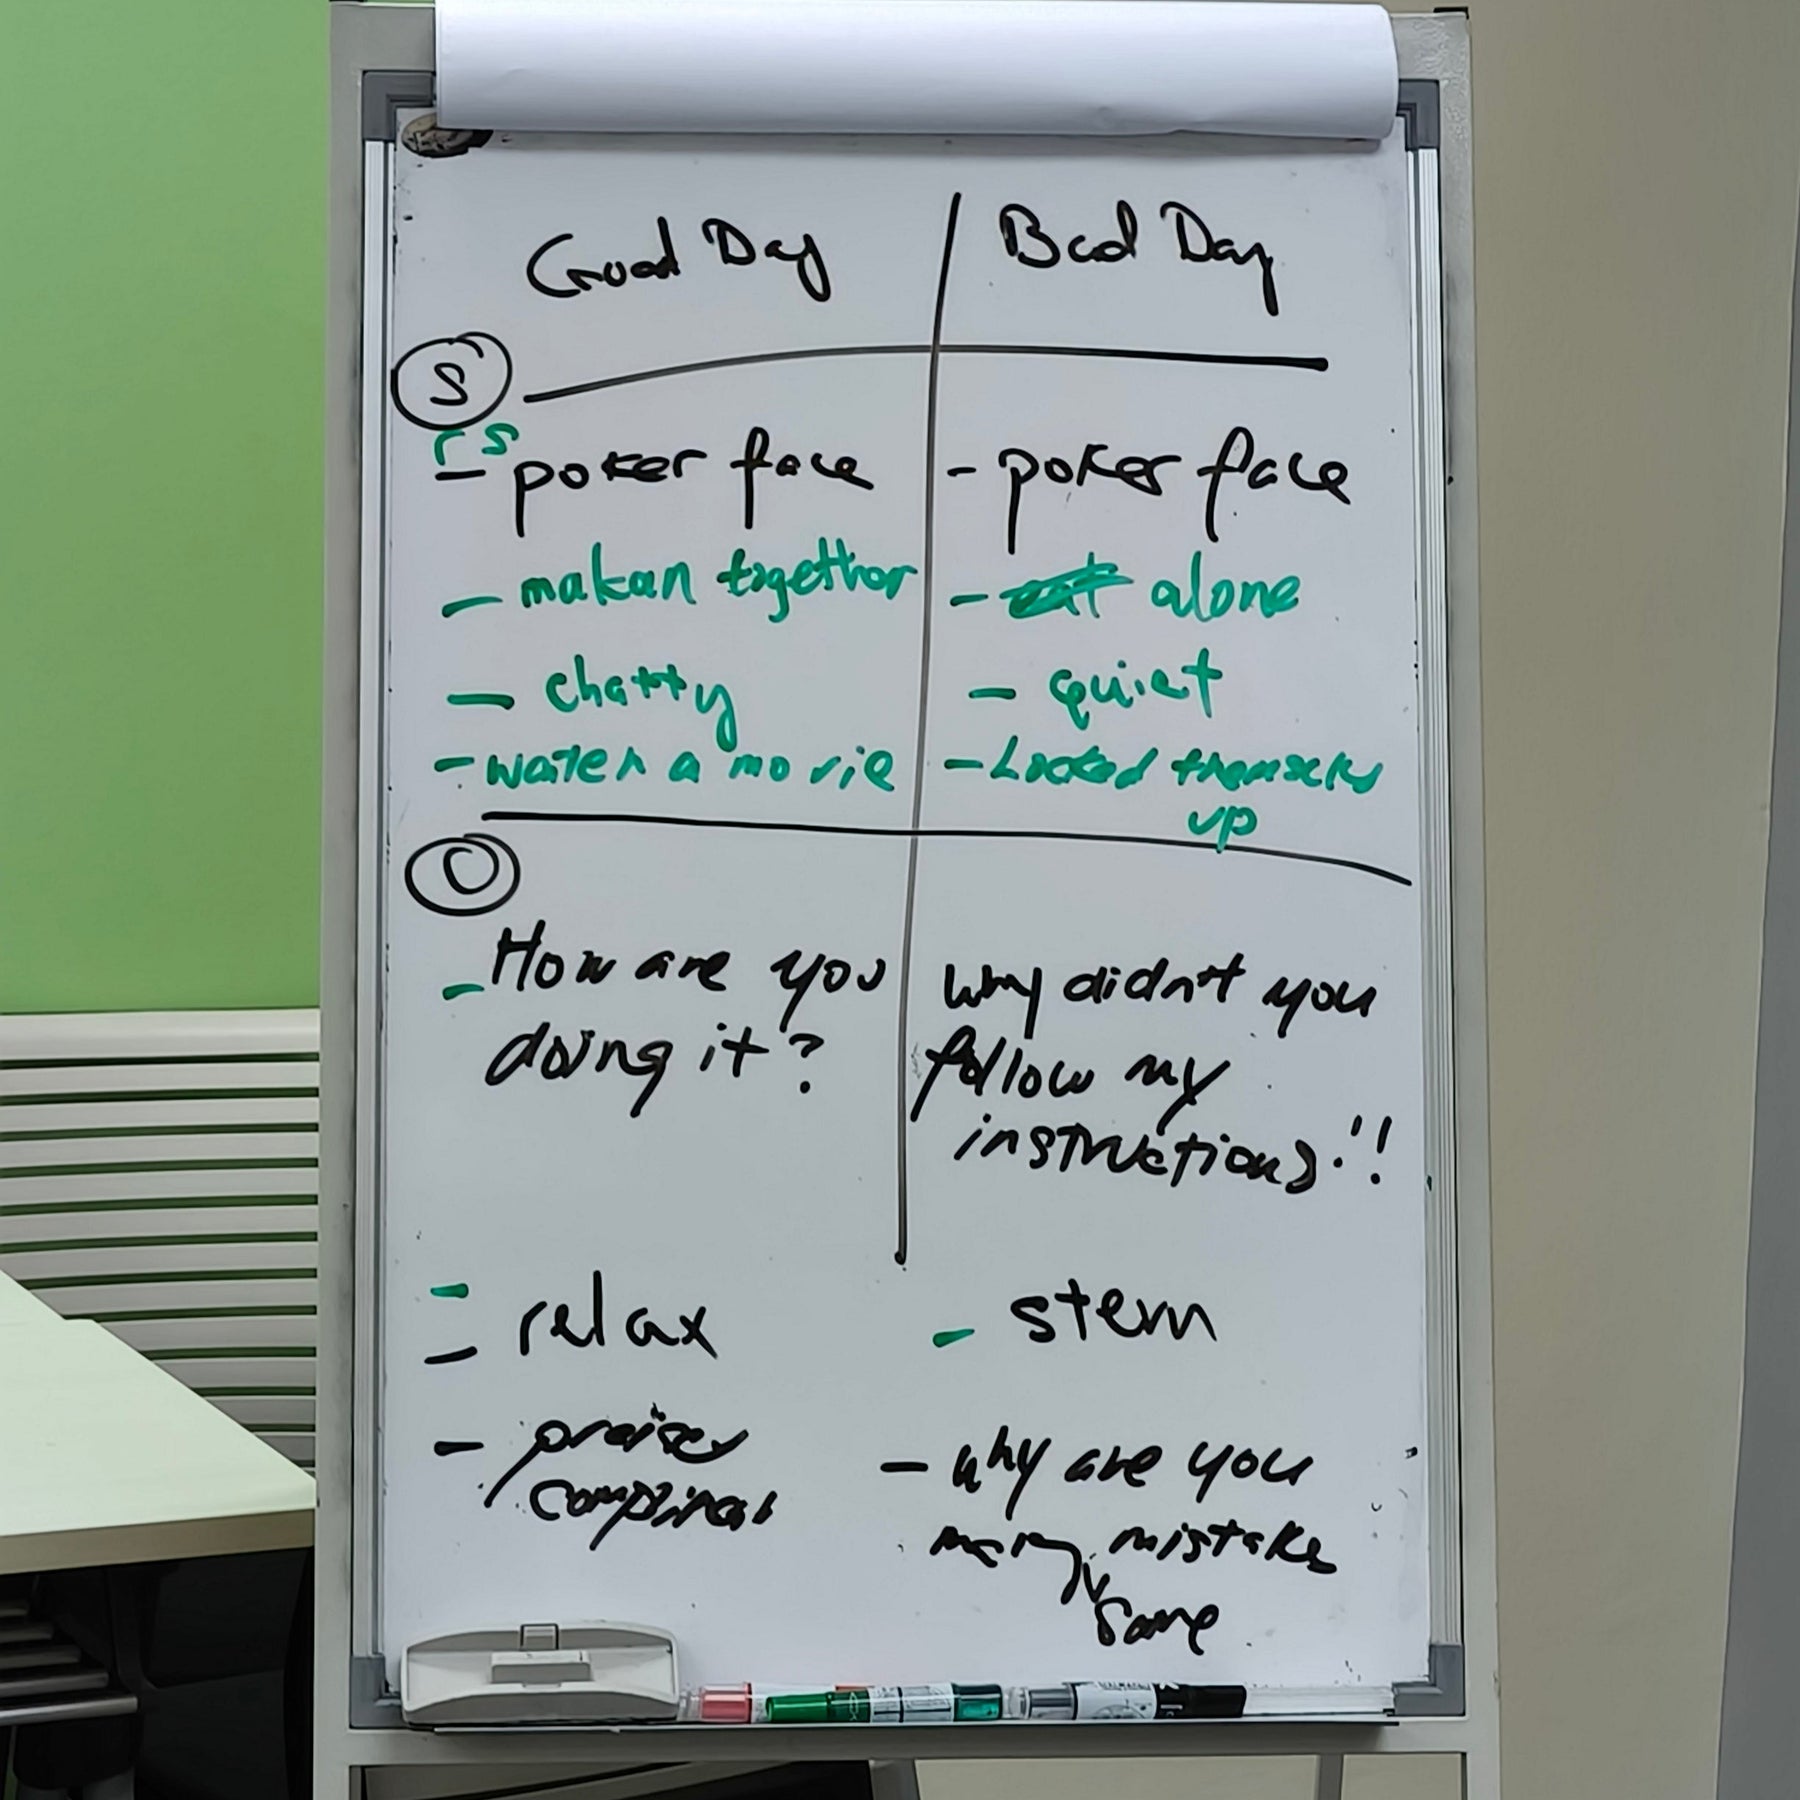 Good Day Bad Day
S
rs
- poker face - poker face
- makan together - alone
- chatty - quiet
- watch a movie - Locked themselves
up
C
- How are you Why didn't you
doing it? follow my
instructions!!
- relax - stern
- praises - why are you
many mistakes
same